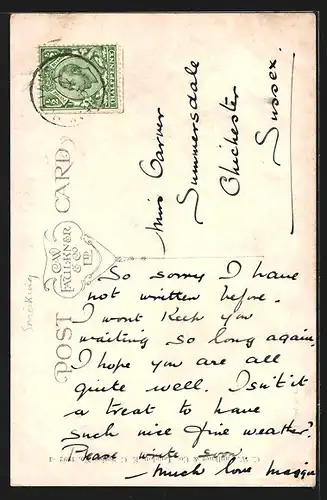 POST CARD
C.W. FAULKNER & CO LTD
Smoking
Miss Carver
Summersdale
Chichester
Sussex.
So sorry I have
not written before.
I wont keep you
waiting so long again,
I hope you are all
quite well. Isn't it
a treat to have
such nice fine weather?
Please write soon
Much love